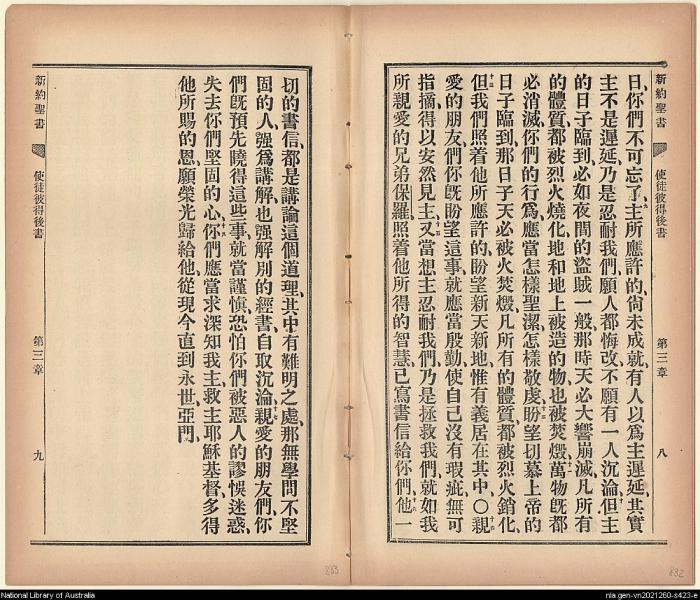 新約聖書
使徒彼得後書
第三章
八
日、你們不可忘了、主所應許的尙未成就、有人以爲主遲延、其實
主不是遲延、乃是忍耐我們、願人都悔改、不願有一人沉淪、但主
的日子臨到、必如夜間的盜賊一般、那時天必大響崩滅、凡所有
的體質都被烈火燒化、地和地上被造的物、也被焚燬、萬物旣都
必消滅、你們的行爲、應當怎樣聖潔、怎樣敬虔、盼望切慕上帝的
日子臨到、那日子天必被火焚燬、凡所有的體質、都被烈火銷化、
但我們照着他所應許的、盼望新天新地、惟有義居在其中、〇親
愛的朋友們、你旣盼望這事、就應當殷勤、使自己沒有瑕疵、無可
指摘、得以安然見主、又當想主忍耐我們、乃是拯救我們、就如我
所親愛的兄弟保羅、照着他所得的智慧、已寫書信給你們、他一
新約聖書
使徒彼得後書
第三章
九
切的書信、都是講論這個道理、其中有難明之處、那無學問不堅
固的人、强爲講解、也强解別的經書、自取沉淪、親愛的朋友們、你
們旣預先曉得這些事、就當謹愼、恐怕你們被惡人的謬悞迷惑、
失去你們堅固的心、你們應當求深知我主救主耶穌基督、多得
他所賜的恩、願榮光歸給他、從現今直到永世、亞們、
283
832
National Library of Australia
nla.gen-vn2021260-s423-e